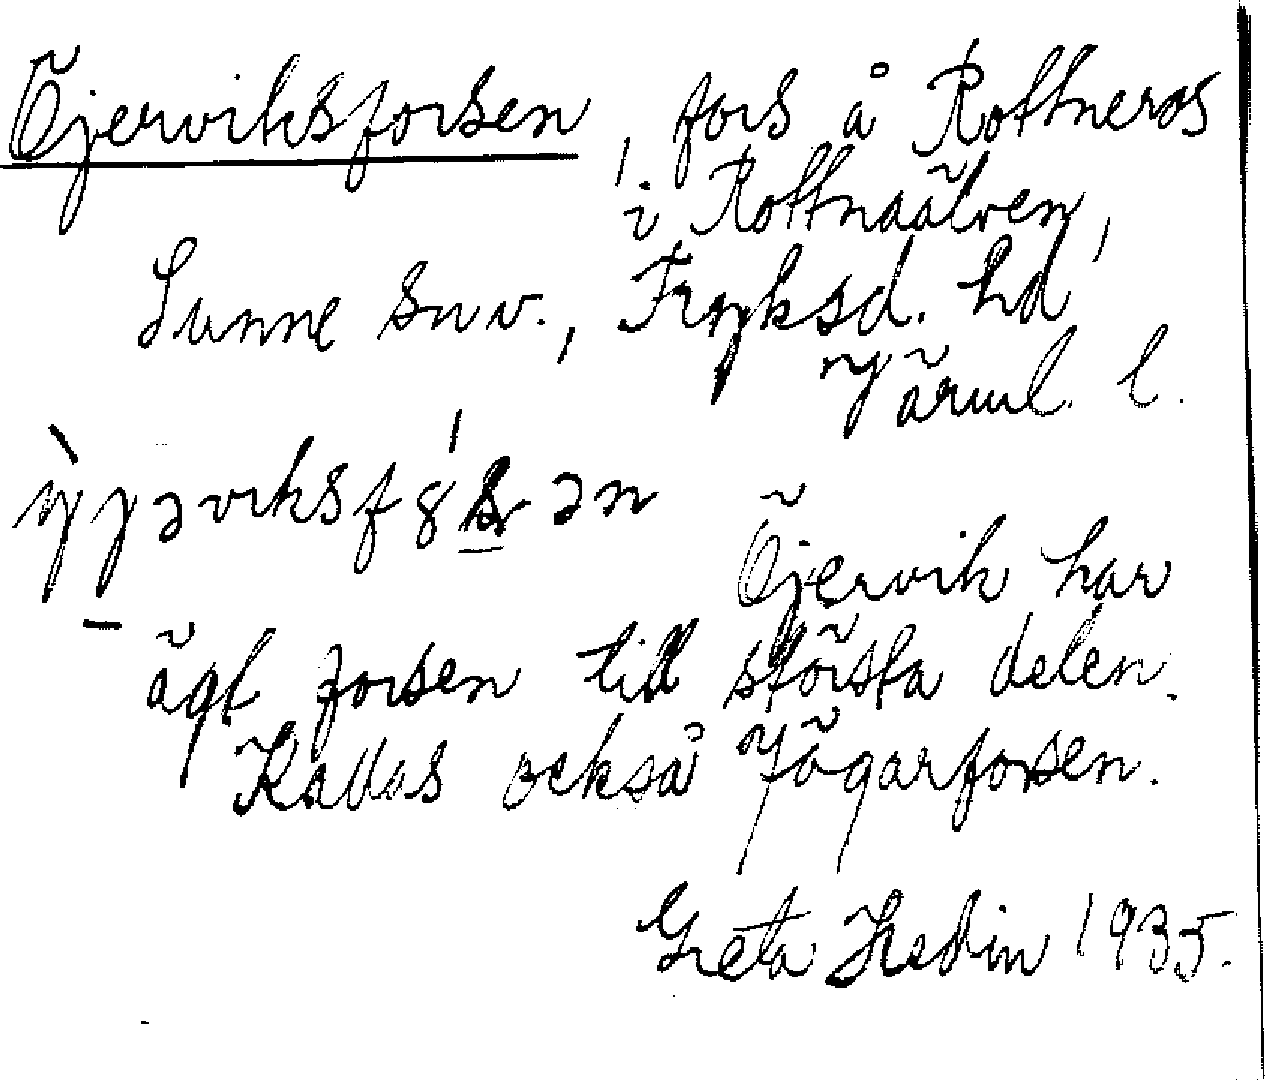 Öjerviksforsen, fors å Rottneros
i Rottnaälven,
Sunne snv., Fryksd. hd
Värml. l.
Öjervik har
ägt forsen till största delen.
Kallas också Jägarforsen.
Greta Hedin 1935.